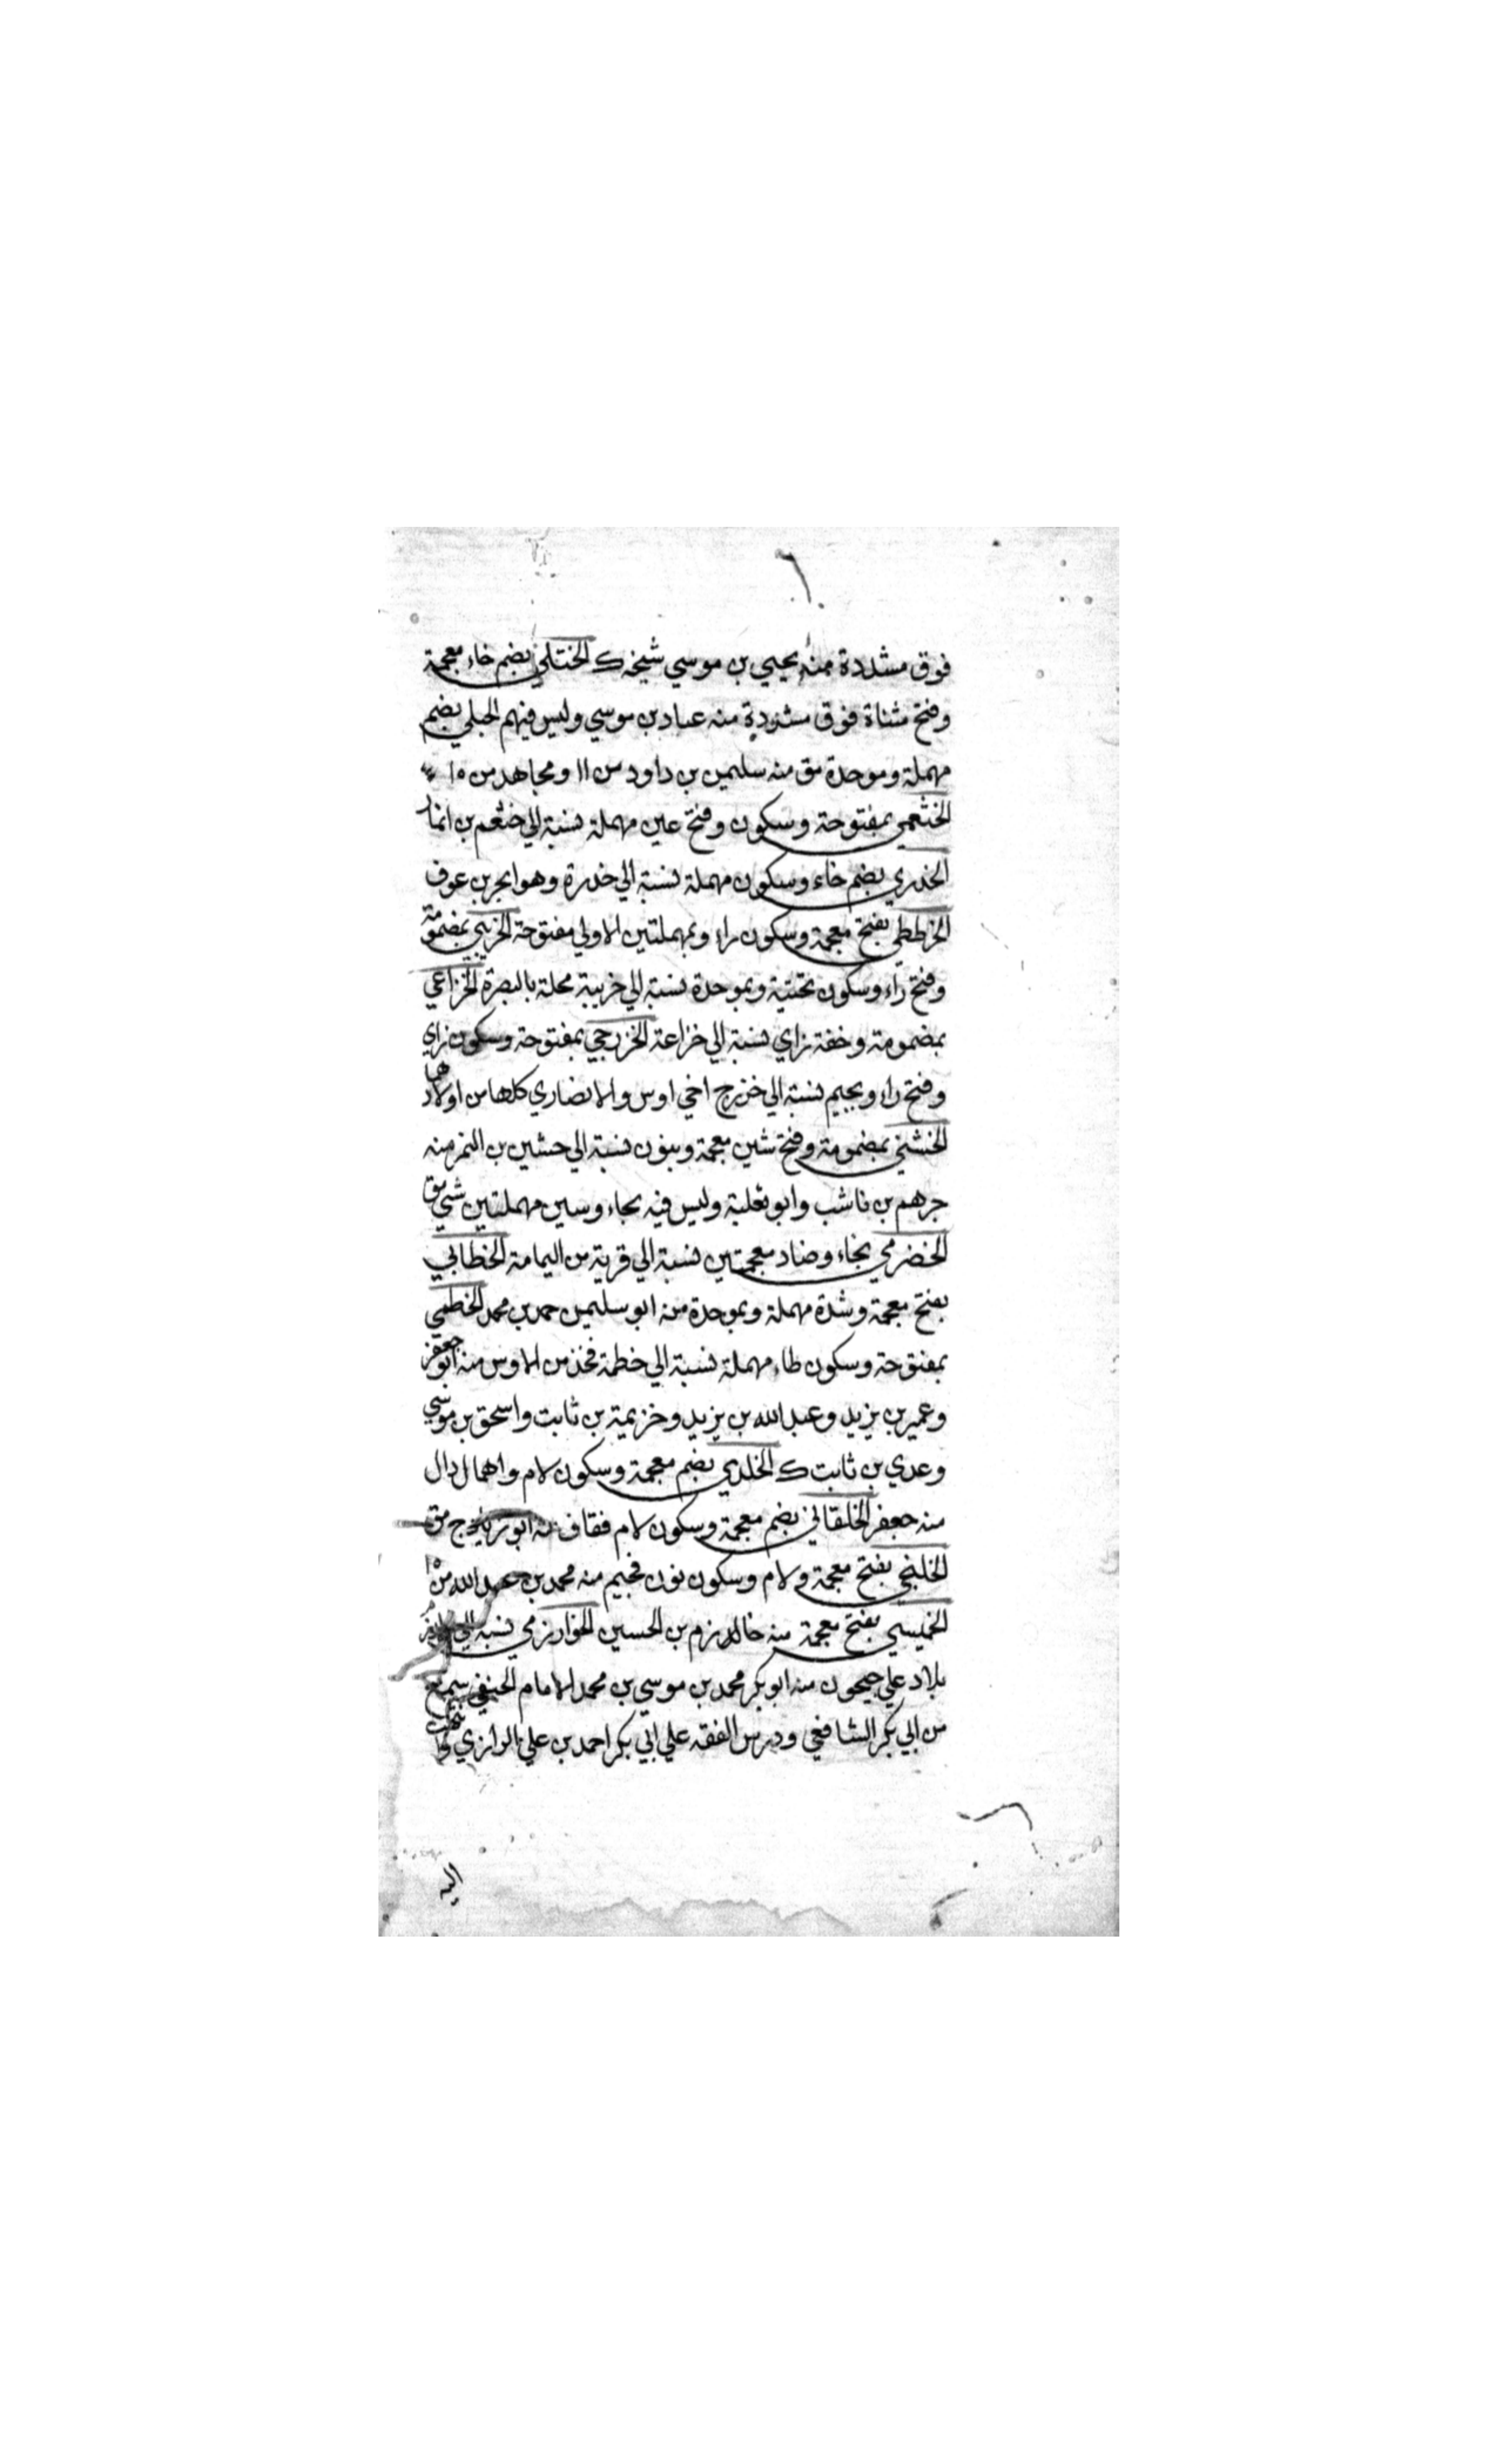 فوق مشددة منه يحيي بن موسي شيخه ك الختلي بضم خاء معجمة
وفتح مثناة فوق مشددة منه عباد بن موسي وليس فيهم الحبلي بضم
مهملة وموحدة مق منه سليمن بن داود من ١١ ومجاهد من ١٠
الخثعمي بمفتوحة وسكون وفتح عين مهملة نسبة الي خثعم بن انمار
الخدري بضم خاء وسكون مهملة نسبة الي خدرة وهو ابجر بن عوف
الخرططي بفتح معجمة وسكون راء وبمهملتين الاولي مفتوحة الخريبي بمضمومة
وفتح راء وسكون تحتية وبموحدة نسبة الي خريبة محلة بالبصرة الخزاعي
بمضمومة وخفة زاي نسبة الي خزاعة الخزرجي بمفتوحة وسكون زاي
وفتح راء وبجيم نسبة الي خزرج اخي اوس والانصاري كلها من اولادهما
الخشني بمضمومة وفتح شين معجمة وبنون نسبة الي خشين بن النمر منه
جرهم بن ناشب وابو ثعلبة وليس فيه بحاء وسين مهملتين شي مق
الخضرمي بخاء وضاد معجمتين نسبة الي قرية من اليمامة الخطابي
بفتح معجمة وشدة مهملة وبموحدة منه ابو سليمن حمد بن محمد الخطمي
بمفتوحة وسكون طاء مهملة نسبة الي خطمة فخذ من الاوس منه ابو جعفر
وعمير بن يزيد وعبد الله بن يزيد وخزيمة بن ثابت واسحق بن موسي
وعدي بن ثابت ك الخلدي بضم معجمة وسكون لام واهمال دال
منه جعفر الخلقاني بضم معجمة وسكون لام فقاف منه ابو ج مق
الخلنجي بفتح معجمة ولام وسكون نون فجيم منه محمد بن عبد الله من ١٠
الخميسي بفتح معجمة منه خالد نزم بن الحسين الخوارزمي نسبة الي
بلاد علي جيحون منه ابو بكر محمد بن موسي بن محمد الامام الحنفي سمع
من ابي بكر الشافعي ودرس الفقه علي ابي بكر احمد بن علي الرازي
اليه